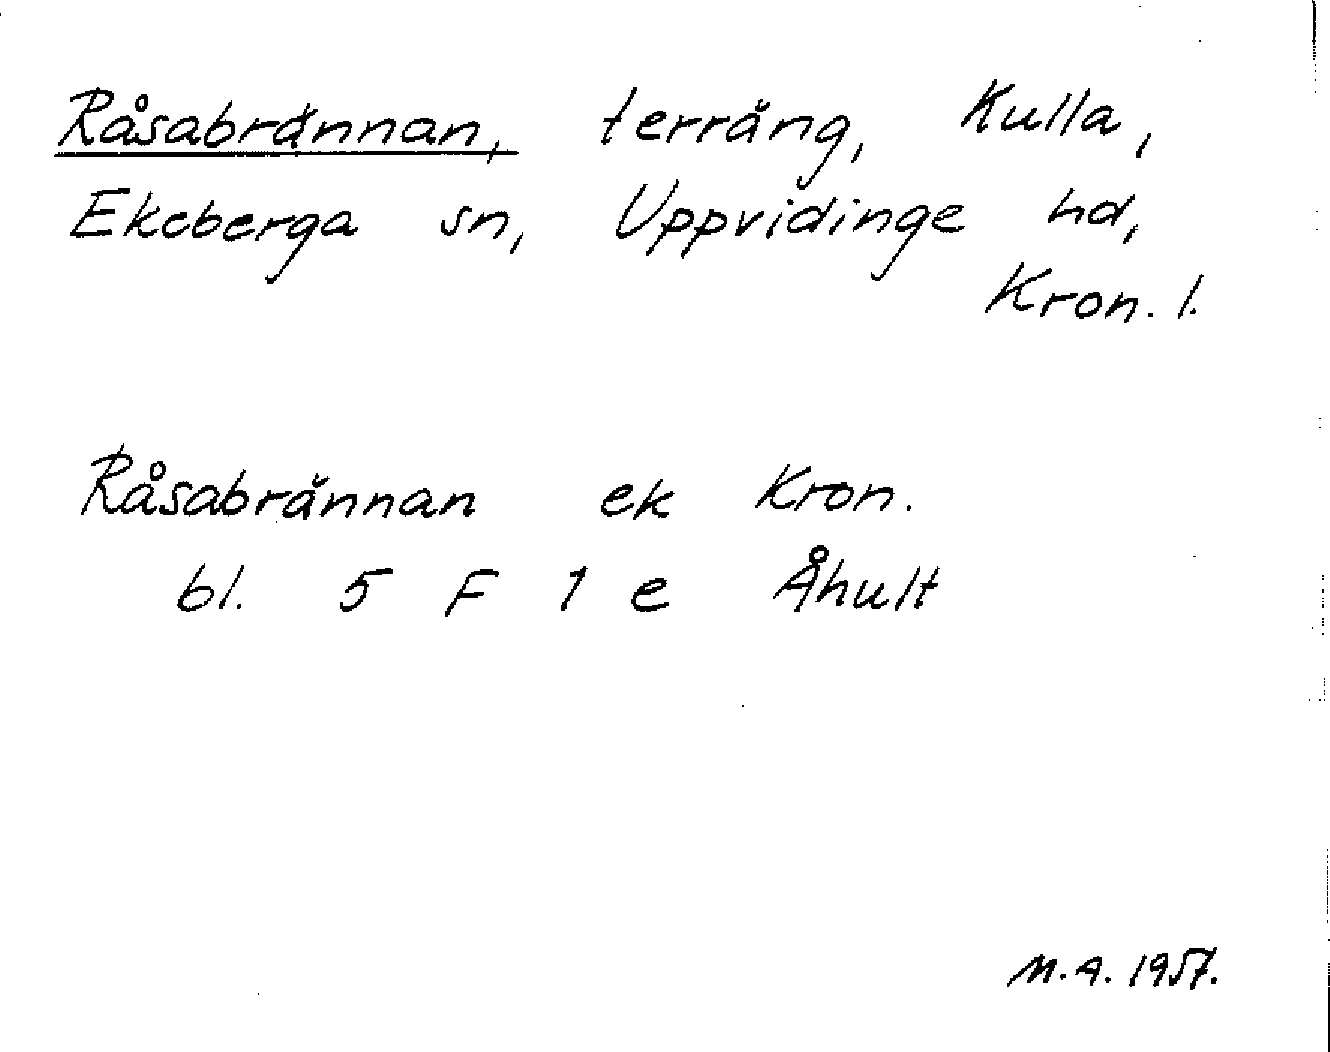 Råsabrännan, terräng, Kulla,
Ekeberga sn, Uppvidinge hd,
Kron. l.
Råsabrännan ek Kron.
bl. 5 F 1 e Åhult
M.A. 1957.